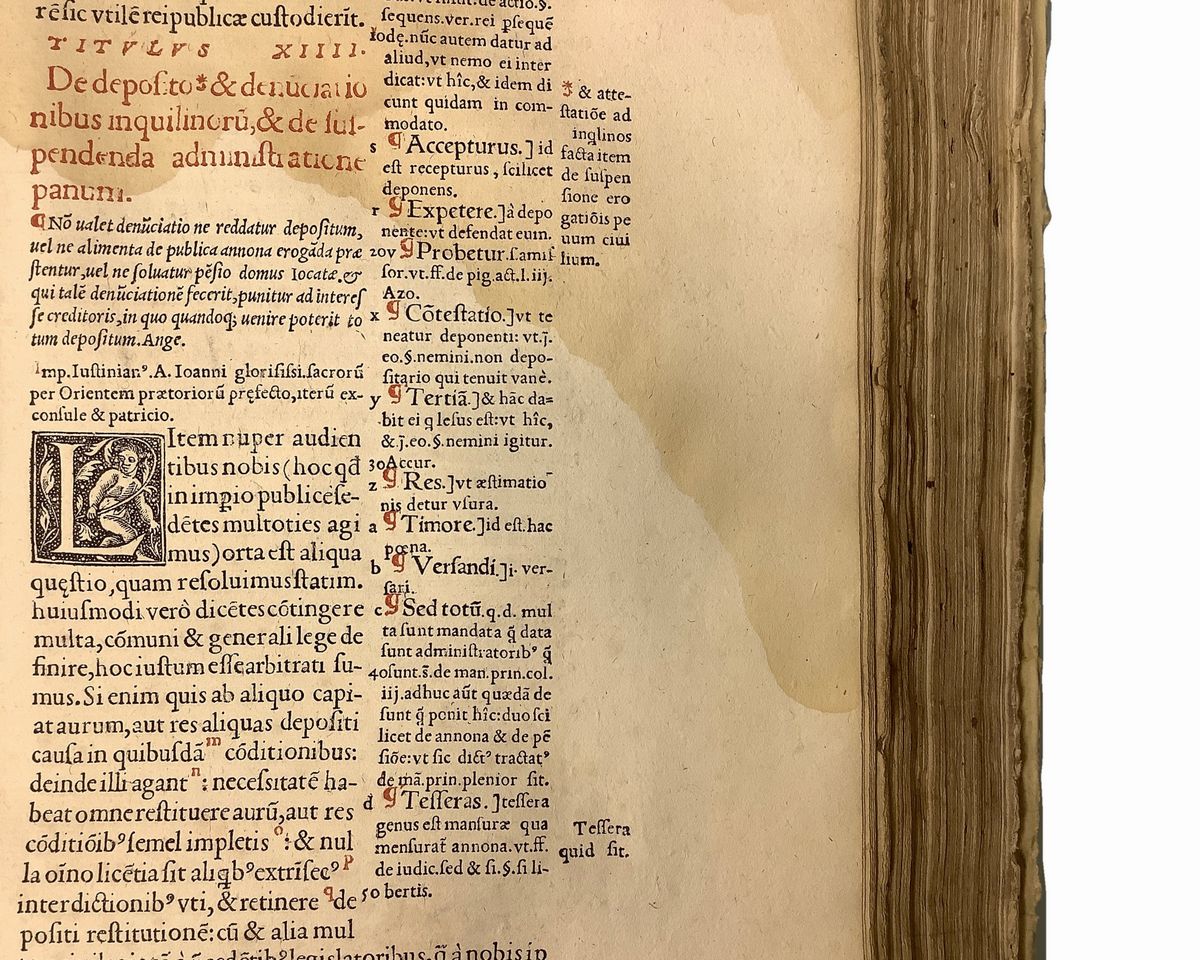 rē sic vtilē reipublicæ custodierīt.
TITVLVS XIIII.
De deposito* & denūciatio
nibus inquilinorū, & de sus-
pendenda administratione
panum.
¶Nō ualet denūciatio ne reddatur depositum,
uel ne alimenta de publica annona erogāda præ
stentur, uel ne soluatur pēsio domus locatæ. &
qui talē denūciationē fecerit, punitur ad interes
se creditoris, in quo quandoq; uenire poterit to
tum depositum. Ange.
Imp. Iustinian.⁹. A. Ioanni glorisissi. sacrorū
per Orientem prætoriorū pręfecto, iterū ex-
consule & patricio.
LItem nuper audien
tibus nobis (hoc qđ
in impio publice se-
dētes multoties agi
mus) orta est aliqua
quęstio, quam resoluimus statim.
huiusmodi verò dicētes cōtingere
multa, cōmuni & generali lege de
finire, hoc iustum esse arbitrati su-
mus. Si enim quis ab aliquo capi-
at aurum, aut res aliquas depositi
causa in quibusdā ᵐ cōditionibus:
deinde illi agant ⁿ: necessitatē ha-
beat omne restituere aurū, aut res
cōditiōib⁹ semel impletis ᵒ: & nul
la oīno licētia sit aliqb⁹ extrīsec⁹ ᵖ
interdictionib⁹ vti, & retinere ᑫ de
positi restitutionē: cū & alia mul
sequens. ver. rei psequē
dę. nūc autem datur ad
aliud, vt nemo ei inter
dicat: vt hîc, & idem di
cunt quidam in com-
modato.
s ¶Accepturus.] id
est recepturus, scilicet
deponens.
r ¶Expetere.] à depo
nente: vt defendat eum.
20 v ¶Probetur. s. amis
sor. vt. ff. de pig. act. l. iij.
Azo.
x ¶Cōtestatio.] vt te
neatur deponenti: vt. j̄.
eo. §. nemini. non depo-
sitario qui tenuit vanè.
y ¶Tertiā.] & hāc da=
bit ei q lesus est: vt hîc,
& .j̄. eo. §. nemini igitur.
30 Accur.
z ¶Res.] vt æstimatio
nis detur vsura.
a ¶Timore.] id est. hac
pœna.
b ¶Versandi.] i. ver-
sari.
c ¶Sed totū. q. d. mul
ta sunt mandata q̄ data
sunt administratorib⁹ q̄
40 sunt. s̄. de man. prin. col.
iij. adhuc aūt quædā de
sunt q̄ ponit hîc: duo sci
licet de annona & de pē
siōe: vt sic dict⁹ tractat⁹
de mā. prin. plenior sit.
d ¶Tesseras.] tessera
genus est mansuræ qua
mensurat̄ annona. vt. ff.
de iudic. sed & si. §. si li-
50 bertis.
* & atte-
statiōe ad
inqlinos
facta item
de suspen
sione ero
gatiōis pe
uum ciui
lium.
Tessera
quid sit.